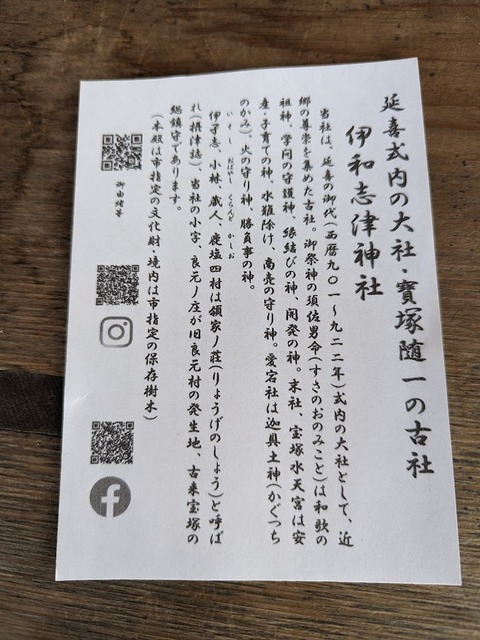 延喜式内の大社・寶塚随一の古社
伊和志津神社
当社は、延喜の御代（西暦九〇一～九二二年）式内の大社として、近
郷の尊崇を集めた古社。御祭神の須佐男命（すさのおのみこと）は和歌の
祖神、学問の守護神、縁結びの神、開発の神。末社、宝塚水天宮は安
産・子育ての神、水難除け、商売の守り神。愛宕社は迦具土神（かぐつち
のかみ）、火の守り神、勝負事の神。
いそし おばやし くらんど かしお
伊孑志、小林、蔵人、鹿塩四村は領家ノ荘（りょうげのしょう）と呼ば
れ（摂津誌）、当社の小字、良元ノ庄が旧良元村の発生地、古来宝塚の
総鎮守であります。
（本殿は市指定の文化財・境内は市指定の保存樹木）
御由緒等